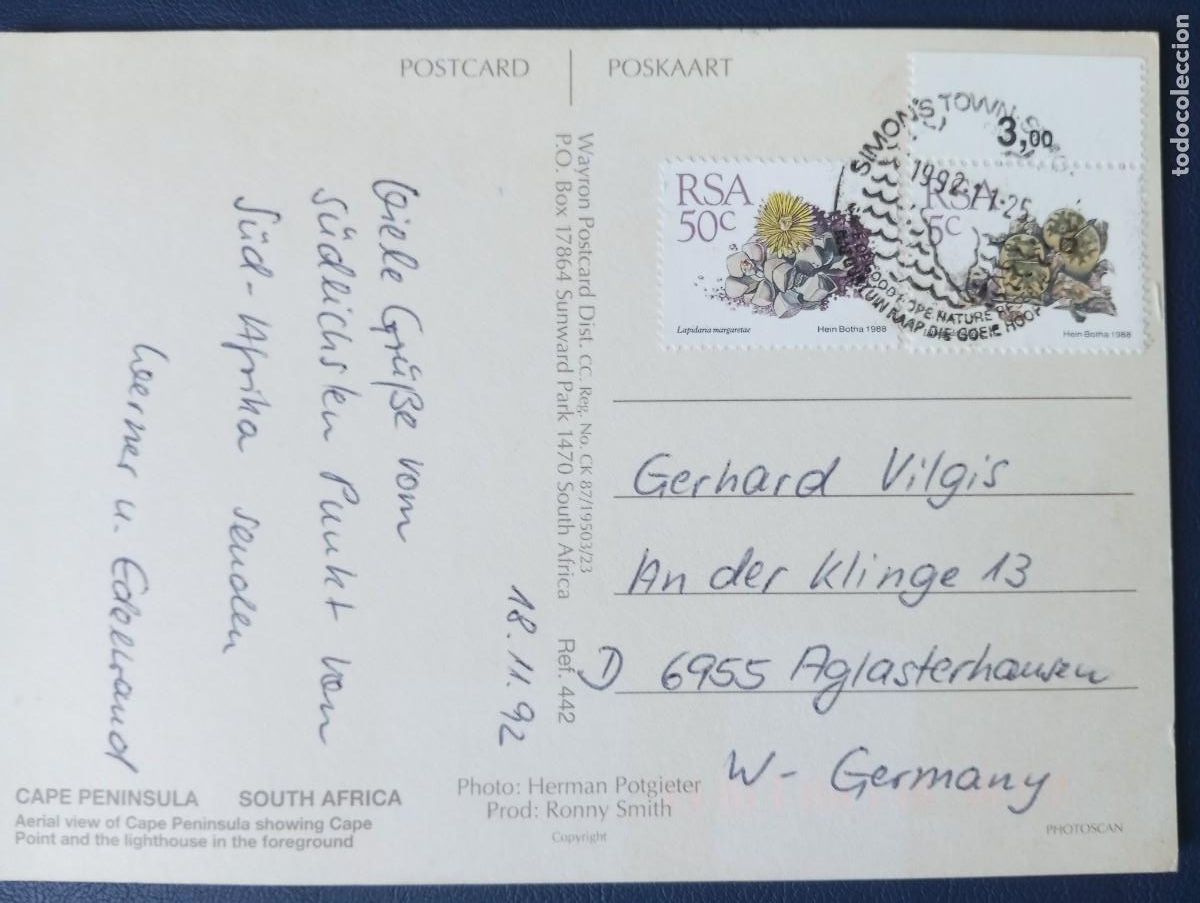 POSTCARD
POSKAART
3,00
SIMON'S TOWN
1992-11-25
GOOD HOPE NATURE
TUIN KAAP DIE GOEIE HOOP
RSA
50c
Lapidaria margaretae
Hein Botha 1988
RSA
5c
Hein Botha 1988
Wayron Postcard Dist. CC. Reg. No. CK 87/19503/23
P.O. Box 17864 Sunward Park 1470 South Africa Ref. 442
Viele Grüße vom
südlichsten Punkt von
Süd-Afrika senden
Werner u. Edeltraud
18.11.92
Gerhard Vilgis
An der Klinge 13
D 6955 Aglasterhausen
W- Germany
CAPE PENINSULA SOUTH AFRICA
Aerial view of Cape Peninsula showing Cape
Point and the lighthouse in the foreground
Photo: Herman Potgieter
Prod: Ronny Smith
Copyright
PHOTOSCAN
todocoleccion